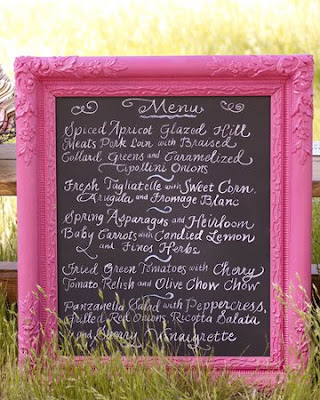 Menu
Spiced Apricot Glazed Hill
Meats Pork Loin with Braised
Collard Greens and Caramelized
Cipollini Onions
Fresh Tagliatelle with Sweet Corn,
Arugula and Fromage Blanc
Spring Asparagus and Heirloom
Baby Carrots with Candied Lemon
and Fines Herbs
Fried Green Tomatoes with Cherry
Tomato Relish and Olive Chow Chow
Panzanella Salad with Peppercress,
Grilled Red Onions, Ricotta Salata
and Sherry Vinaigrette